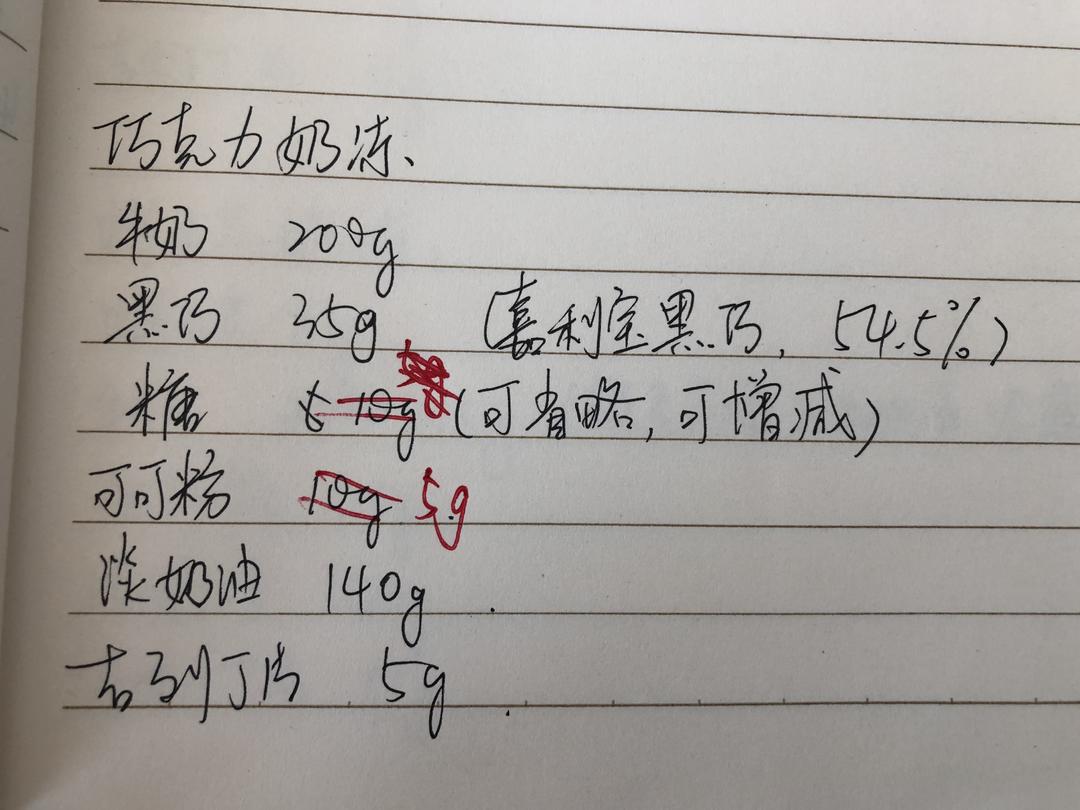 巧克力奶冻、
牛奶 200g
黑巧 35g (嘉利宝黑巧, 54.5%)
糖 5-10g (可省略, 可增减)
可可粉 10g 5g
淡奶油 140g.
吉利丁片 5g.